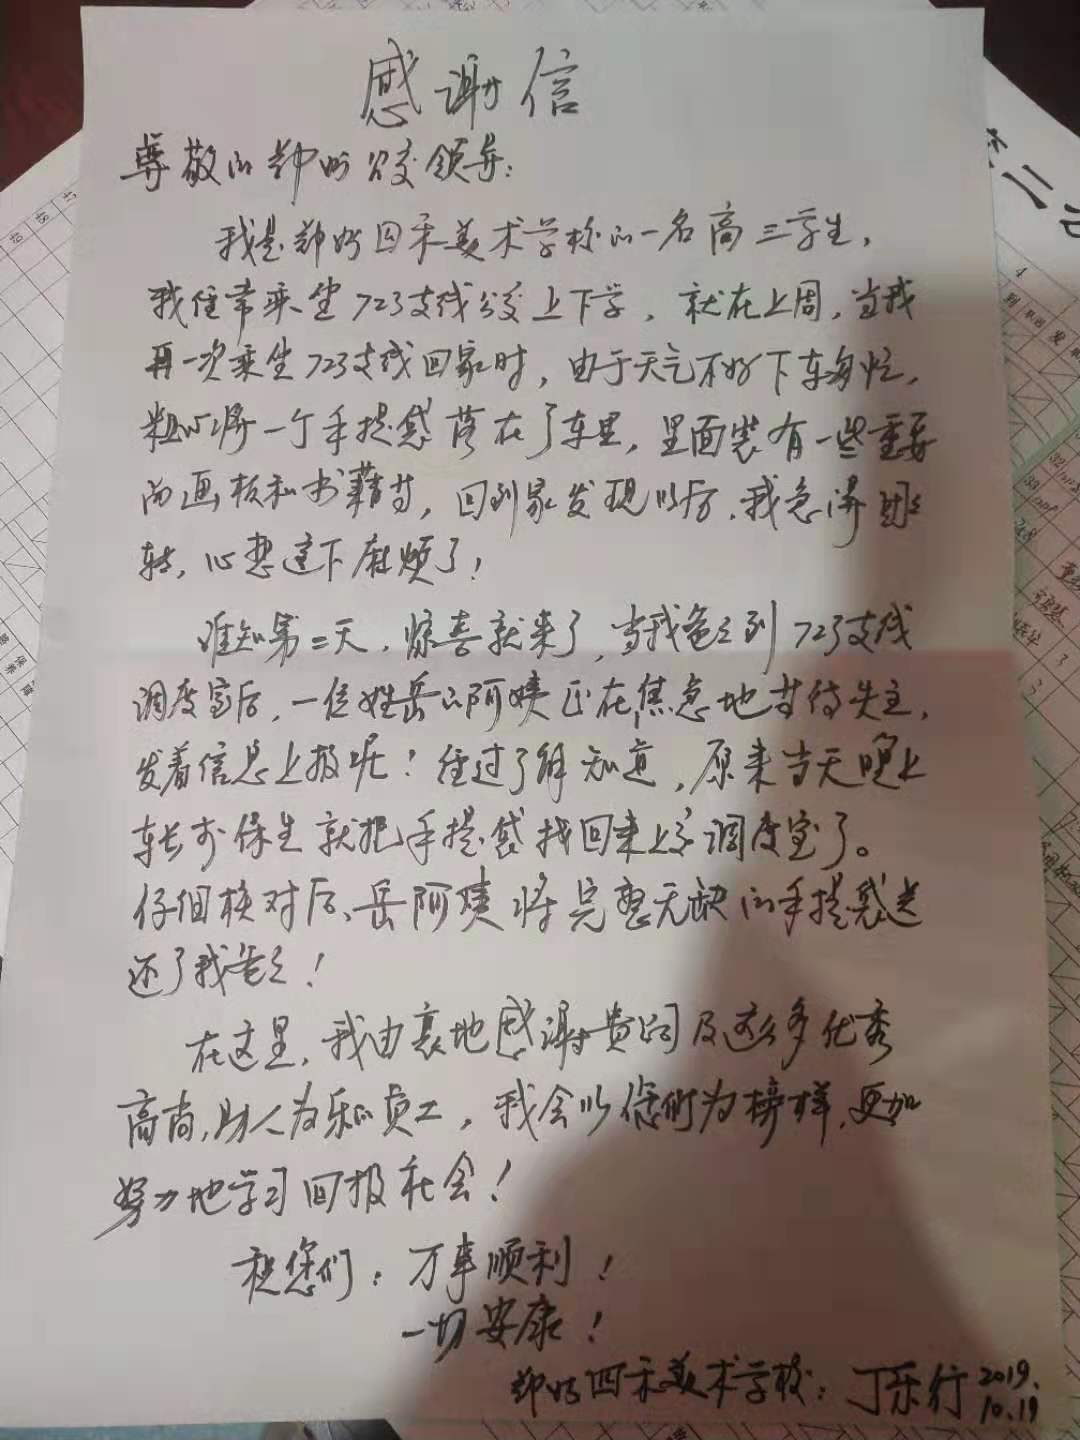 感谢信
尊敬的郑州公交领导：
我是郑州四禾美术学校的一名高三学生，
我经常乘坐723支线公交上下学，就在上周，当我
再一次乘坐723支线回家时，由于天气不好下车匆忙，
粗心将一个手提袋落在了车里，里面装有一些重要
的画板和书籍等，回到家发现以后，我急得团团
转，心想这下麻烦了！
谁知第二天，惊喜就来了，当我爸爸到723支线
调度室后，一位姓岳的阿姨正在焦急地等待失主，
发着信息上报呢！经过了解知道，原来当天晚上
车长李保生就把手提袋找回来上交调度室了。
仔细核对后，岳阿姨将完整无缺的手提袋送
还了我爸爸！
在这里，我由衷地感谢贵公司及这么多优秀
高尚，助人为乐的员工，我会以您们为榜样，更加
努力地学习回报社会！
祝您们：万事顺利！
一切安康！
郑州四禾美术学校：丁乐行 2019.
10.19